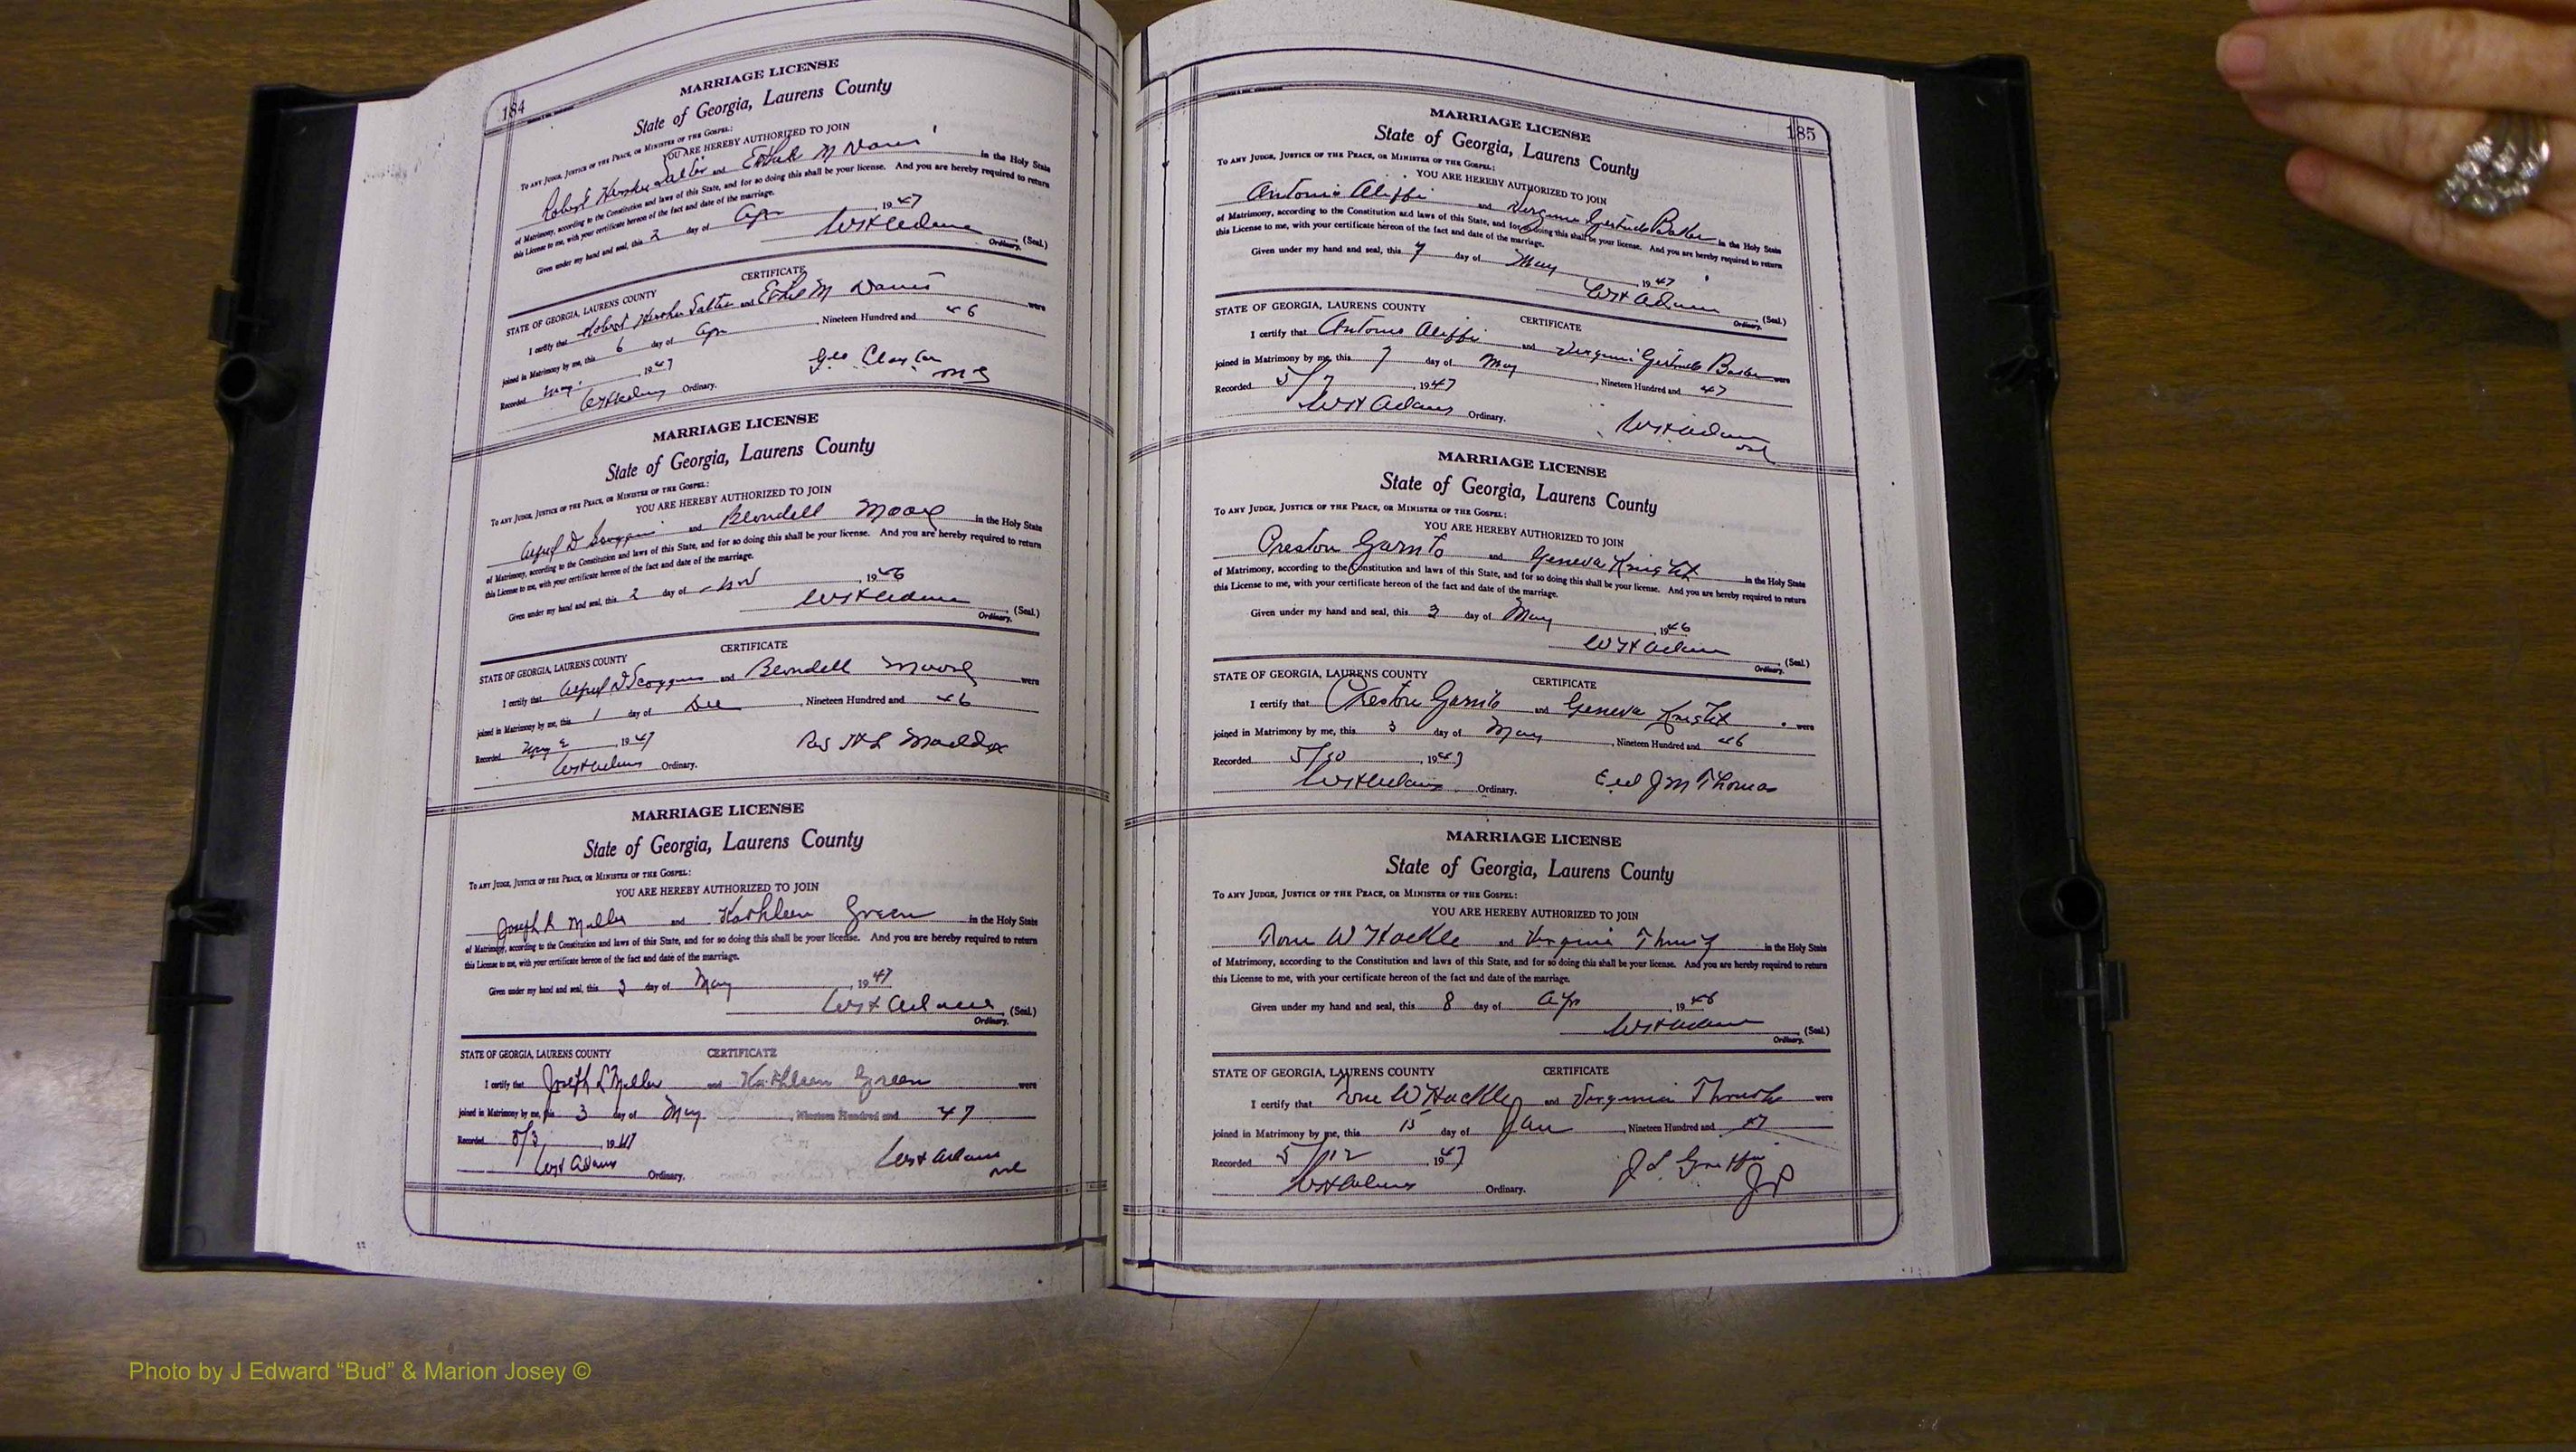 184
MARRIAGE LICENSE
State of Georgia, Laurens County
TO ANY JUDGE, JUSTICE OF THE PEACE, OR MINISTER OF THE GOSPEL:
YOU ARE HEREBY AUTHORIZED TO JOIN
Robert Hershu Salter and Ethel M Davis in the Holy State
of Matrimony, according to the Constitution and laws of this State, and for so doing this shall be your license. And you are hereby required to return
this License to me, with your certificate hereon of the fact and date of the marriage.
Given under my hand and seal, this 2 day of Apr 1947
WH Adams (Seal.)
Ordinary.
CERTIFICATE
STATE OF GEORGIA, LAURENS COUNTY
I certify that Robert Hershu Salter and Ethel M Davis were
joined in Matrimony by me, this 6 day of Apr, Nineteen Hundred and 46
Recorded May 1947
Geo Claxton MG
WH Adams Ordinary.
MARRIAGE LICENSE
State of Georgia, Laurens County
TO ANY JUDGE, JUSTICE OF THE PEACE, OR MINISTER OF THE GOSPEL:
YOU ARE HEREBY AUTHORIZED TO JOIN
Alfred D Scoggins and Blondell Moore in the Holy State
of Matrimony, according to the Constitution and laws of this State, and for so doing this shall be your license. And you are hereby required to return
this License to me, with your certificate hereon of the fact and date of the marriage.
Given under my hand and seal, this 2 day of Nov, 1946
WH Adams (Seal.)
Ordinary.
CERTIFICATE
STATE OF GEORGIA, LAURENS COUNTY
I certify that Alfred D Scoggins and Blondell Moore were
joined in Matrimony by me, this 1 day of Dec, Nineteen Hundred and 46
Recorded May 2, 1947
Rev Maddox
WH Adams Ordinary.
MARRIAGE LICENSE
State of Georgia, Laurens County
TO ANY JUDGE, JUSTICE OF THE PEACE, OR MINISTER OF THE GOSPEL:
YOU ARE HEREBY AUTHORIZED TO JOIN
Joseph R Miller and Kathleen Green in the Holy State
of Matrimony, according to the Constitution and laws of this State, and for so doing this shall be your license. And you are hereby required to return
this License to me, with your certificate hereon of the fact and date of the marriage.
Given under my hand and seal, this 3 day of May, 1947
WH Adams (Seal.)
Ordinary.
STATE OF GEORGIA, LAURENS COUNTY CERTIFICATE
I certify that Joseph L Miller and Kathleen Green were
joined in Matrimony by me, this 3 day of May, Nineteen Hundred and 47
Recorded 5/3, 1947
WH Adams
WH Adams Ordinary.
185
MARRIAGE LICENSE
State of Georgia, Laurens County
TO ANY JUDGE, JUSTICE OF THE PEACE, OR MINISTER OF THE GOSPEL:
YOU ARE HEREBY AUTHORIZED TO JOIN
Antonio Aliffi and Virginia Gertrude Baker in the Holy State
of Matrimony, according to the Constitution and laws of this State, and for so doing this shall be your license. And you are hereby required to return
this License to me, with your certificate hereon of the fact and date of the marriage.
Given under my hand and seal, this 7 day of May, 1947
WH Adams (Seal.)
Ordinary.
STATE OF GEORGIA, LAURENS COUNTY CERTIFICATE
I certify that Antonio Aliffi and Virginia Gertrude Baker were
joined in Matrimony by me, this 7 day of May, Nineteen Hundred and 47
Recorded 5/7, 1947
WH Adams Ordinary.
WH Adams
MARRIAGE LICENSE
State of Georgia, Laurens County
TO ANY JUDGE, JUSTICE OF THE PEACE, OR MINISTER OF THE GOSPEL:
YOU ARE HEREBY AUTHORIZED TO JOIN
Preston Garnto and Geneva Knight in the Holy State
of Matrimony, according to the Constitution and laws of this State, and for so doing this shall be your license. And you are hereby required to return
this License to me, with your certificate hereon of the fact and date of the marriage.
Given under my hand and seal, this 3 day of May, 1946
WH Adams (Seal.)
Ordinary.
STATE OF GEORGIA, LAURENS COUNTY CERTIFICATE
I certify that Preston Garnto and Geneva Knight were
joined in Matrimony by me, this 3 day of May, Nineteen Hundred and 46
Recorded 5/10, 1947
WH Adams Ordinary.
J M Thomas
MARRIAGE LICENSE
State of Georgia, Laurens County
TO ANY JUDGE, JUSTICE OF THE PEACE, OR MINISTER OF THE GOSPEL:
YOU ARE HEREBY AUTHORIZED TO JOIN
W Hackle and Virginia in the Holy State
of Matrimony, according to the Constitution and laws of this State, and for so doing this shall be your license. And you are hereby required to return
this License to me, with your certificate hereon of the fact and date of the marriage.
Given under my hand and seal, this 8 day of Apr, 1946
WH Adams (Seal.)
Ordinary.
STATE OF GEORGIA, LAURENS COUNTY CERTIFICATE
I certify that W Hackle and Virginia were
joined in Matrimony by me, this 15 day of Jan, Nineteen Hundred and 47
Recorded 5/12, 1947
WH Adams Ordinary.
JP
Photo by J Edward “Bud” & Marion Josey ©